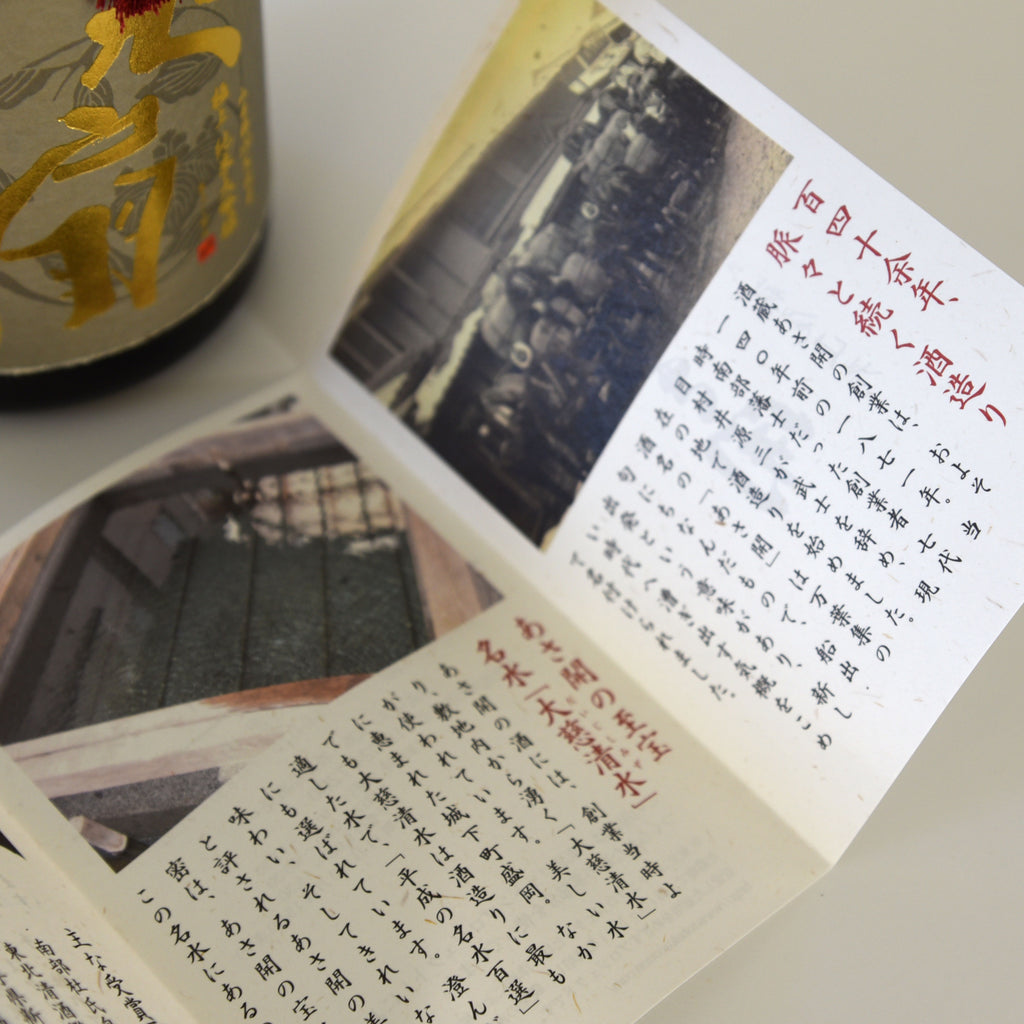 百四十余年、
脈々と続く酒造り
酒蔵あさ開の創業は、およそ
一四〇年前の一八七一年。当
時南部藩士だった創業者七代
目村井源三が武士を辞め、現
在の地で酒造りを始めました。
酒名の「あさ開」は万葉集の
句にちなんだもので、船出
出発という意味があり、新し
い時代へ漕ぎ出す気概をこめ
て名付けられました。
あさ開の至宝
名水「大慈清水」
あさ開の酒には、創業当時よ
り、敷地内から湧く「大慈清水」
が使われています。美しい水
に恵まれた城下町盛岡。なか
でも大慈清水は酒造りに最も
適した水で、「平成の名水百選」
にも選ばれています。澄ん
味わい、そしてきれいな
と評されるあさ開の美
密は、あさ開の宝
この名水にある
主な受賞
南部杜氏
東北清酒